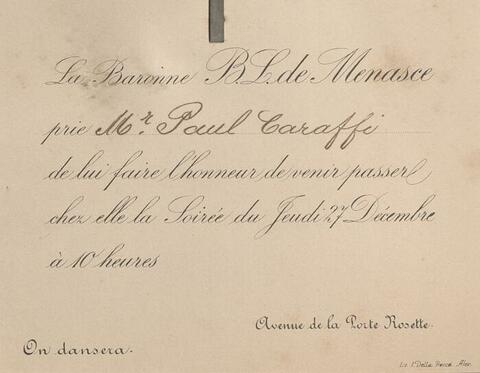 La Baronne B. L. de Menasce
prie Mr. Paul Caraffi
de lui faire l'honneur de venir passer
chez elle la Soirée du Jeudi 27 Décembre
à 10 heures
Avenue de la Porte Rosette.
On dansera.
Della Rocca Alex.